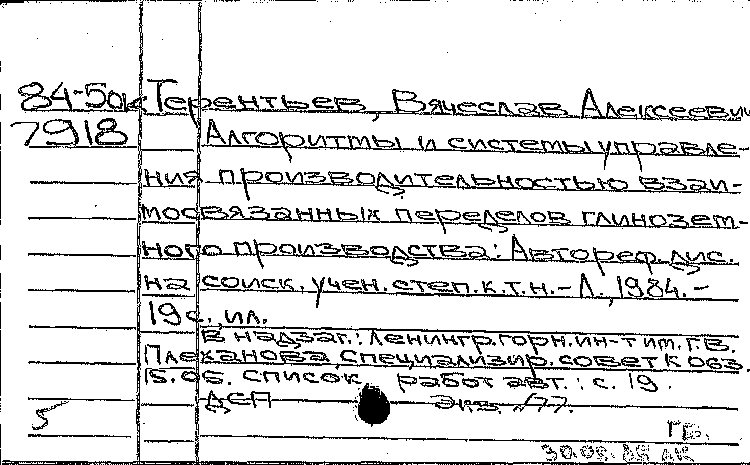 84-5дк Терентьев, Вячеслав Алексеевич
7918 Алгоритмы и системы управле-
ния производительностью взаи-
мосвязанных переделов глинозем-
ного производства: Автореф. дис.
на соиск. учен. степ. к.т.н. - Л., 1984. -
19 с., ил.
В надзаг.: Ленингр. горн. ин-т им. Г.В.
Плеханова, специализир. совет К 063.
15.06. Список работ авт.: с. 19.
ДСП Экз. №77.
5 ГБ.